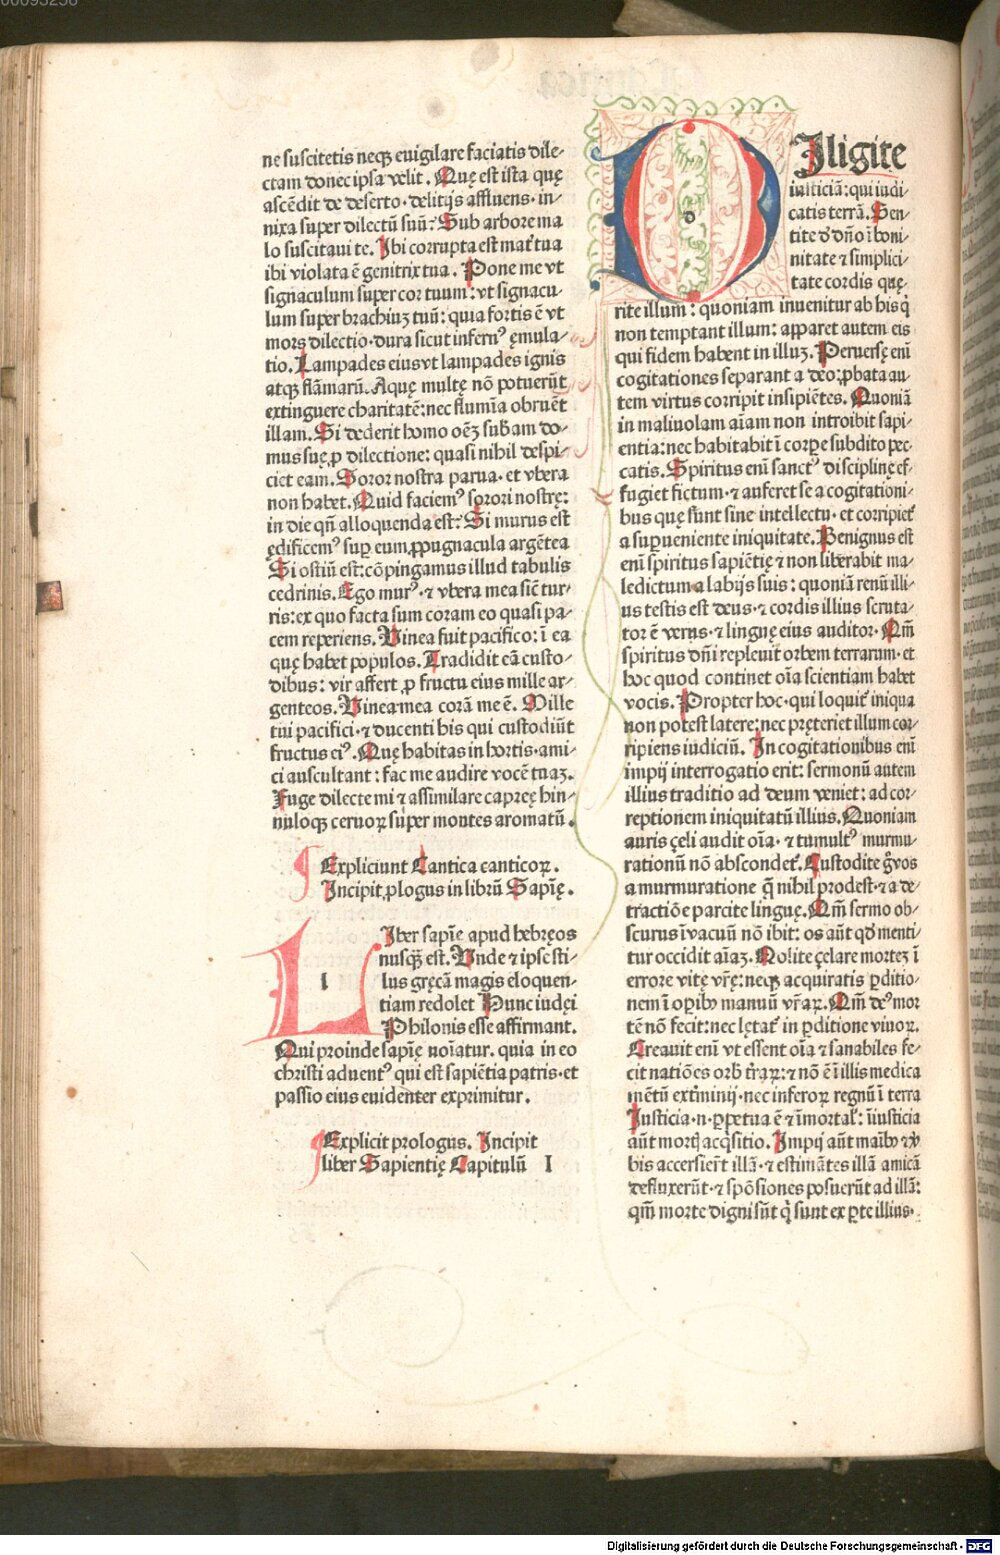 ne suscitetis neqȝ euigilare faciatis dile-
ctam donec ipsa velit. Quę est ista quę
ascēdit de deserto· delitijs affluens· in-
nixa super dilectū suū? Sub arbore ma
lo suscitaui te. Ibi corrupta est mat̄ tua
ibi violata ē genitrix tua. Pone me vt
signaculum super cor tuum: vt signacu-
lum super brachiuȝ tuū: quia fortis ē vt
mors dilectio· dura sicut infernꝰ ęmula-
tio. Lampades eius vt lampades ignis
atqȝ flāmarū. Aquę multę nō potuerūt
extinguere charitatē: nec flumīa obruēt
illam. Si dederit homo oēȝ subam do-
mus suę ꝓ dilectione: quasi nihil despi-
ciet eam. Soror nostra parua· et vbera
non habet. Quid faciemꝰ sorori nostrę:
in die qn̄ alloquenda est? Si murus est
ędificemꝰ suꝑ eum ꝓpugnacula argētea
Si ostiū est: cōpingamus illud tabulis
cedrinis. Ego murꝰ· ⁊ vbera mea sic̄ tur-
ris: ex quo facta sum coram eo quasi pa-
cem reperiens. Uinea fuit pacifico: ī ea
quę habet populos. Tradidit eā custo-
dibus: vir affert ꝓ fructu eius mille ar-
genteos. Uinea mea corā me ē. Mille
tui pacifici· ⁊ ducenti his qui custodiūt
fructus eiꝰ. Quę habitas in hortis· ami-
ci auscultant: fac me audire vocē tuaȝ.
Fuge dilecte mi ⁊ assimilare capreę hin-
nuloqȝ ceruoꝝ super montes aromatū.
Expliciunt Cantica canticoꝝ.
Incipit ꝓlogus in librū Sapīę.
LIber sapīe apud hebręos
nusqȝ̄ est. Unde ⁊ ipse sti-
lus gręcā magis eloquen-
tiam redolet Hunc iudęi
Philonis esse affirmant.
Qui proinde sapīę noīatur. quia in eo
christi aduentꝰ qui est sapiētia patris· et
passio eius euidenter exprimitur.
Explicit prologus. Incipit
liber Sapientię Capitulū I
DIligite
iusticiā: qui iudi-
catis terrā. Sen-
tite d̄ dn̄o ī boni-
nitate ⁊ simplici-
tate cordis quę
rite illum: quoniam inuenitur ab his q̇
non temptant illum: apparet autem eis
qui fidem habent in illuȝ. Peruersę eni̅
cogitationes separant a deo: ꝓbata au-
tem virtus corripit insipiētes. Quoniā
in maliuolam aīam non introibit sapi-
entia: nec habitabit ī corꝑe subdito pec-
catis. Spiritus eni̅ sanctꝰ disciplinę ef-
fugiet fictum· ⁊ auferet se a cogitationi-
bus quę sunt sine intellectu· et corripiet᷑
a suꝑueniente iniquitate. Benignus est
eni̅ spiritus sapiētię ⁊ non liberabit ma-
ledictum a labijs suis: quoniā renū illi-
us testis est deus· ⁊ cordis illius scruta-
tor ē verus· ⁊ linguę eius auditor. Qm̄
spiritus dn̄i repleuit orbem terrarum· et
hoc quod continet oīa scientiam habet
vocis. Propter hoc· qui loquit᷑ iniqua
non potest latere: nec pręteriet illum cor-
ripiens iudiciū. In cogitationibus eni̅
impij interrogatio erit: sermonū autem
illius traditio ad deum veniet: ad cor-
reptionem iniquitatū illius. Quoniam
auris çeli audit oīa· ⁊ tumultꝰ murmu-
rationū nō abscondet᷑. Custodite g̊ vos
a murmuratione q̄ nihil prodest· ⁊ a de-
tractiōe parcite linguę. Qm̄ sermo ob-
scurus ī vacuū nō ibit: os aūt qd̄ menti-
tur occidit aīaȝ. Nolite çelare morteȝ ī
errore vitę vr̄ę: neqȝ acquiratis ꝑditio-
nem ī oꝑibꝫ manuū vr̄aꝝ. Qm̄ deꝰ mor
tē nō fecit: nec lętat᷑ in ꝑditione viuoꝝ.
Creauit eni̅ vt essent oīa ⁊ sanabiles fe-
cit natiōes orb̄ tr̄aꝝ: ⁊ nō ē ī illis medica
mētū ext̄minij· nec inferoꝝ regnū ī terra
Iusticia ·n· ꝑpetua ē ⁊ īmortal̄: īiusticia
aūt mort̄ acq̇sitio. Impij aūt manibꝫ ⁊ v̄
bis accersier̄t illā· ⁊ estimātes illā amicā
defluxerūt· ⁊ spōsiones posuerūt ad illā:
qm̄ morte digni sūt q̇ sunt ex ꝑte illius·
Digitalisierung gefördert durch die Deutsche Forschungsgemeinschaft - DFG